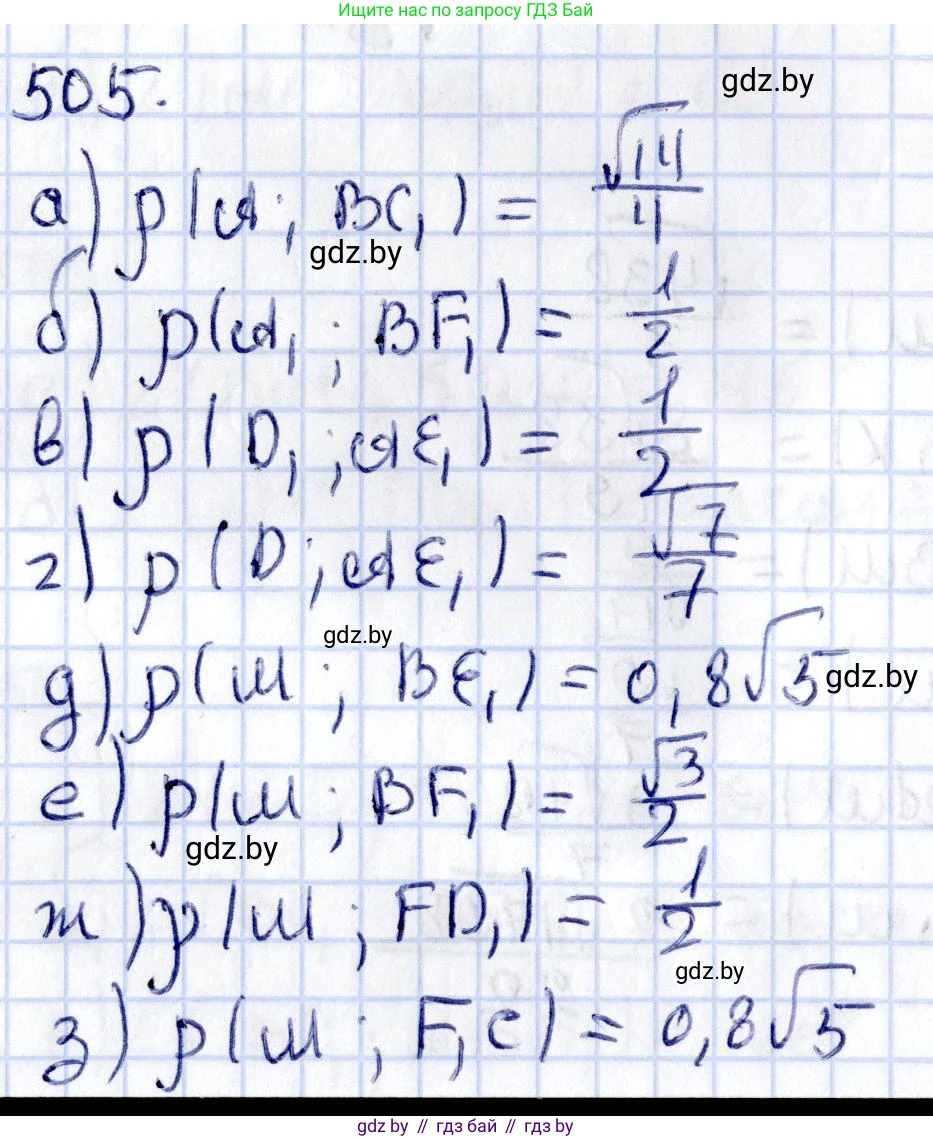 Ищите нас по запросу ГДЗ Бай
505.
gdz.by
а) ρ(A; BC₁) = √14/4
gdz.by
б) ρ(A₁; BF₁) = 1/2
в) ρ(D₁; AE₁) = 1/2
г) ρ(D; AE₁) = √7/7
gdz.by
д) ρ(M; BE₁) = 0,8√5
gdz.by
е) ρ(M; BF₁) = √3/2
gdz.by
ж) ρ(M; FD₁) = 1/2
gdz.by
з) ρ(M; F₁C) = 0,8√5
gdz.by // гдз бай // гдз by